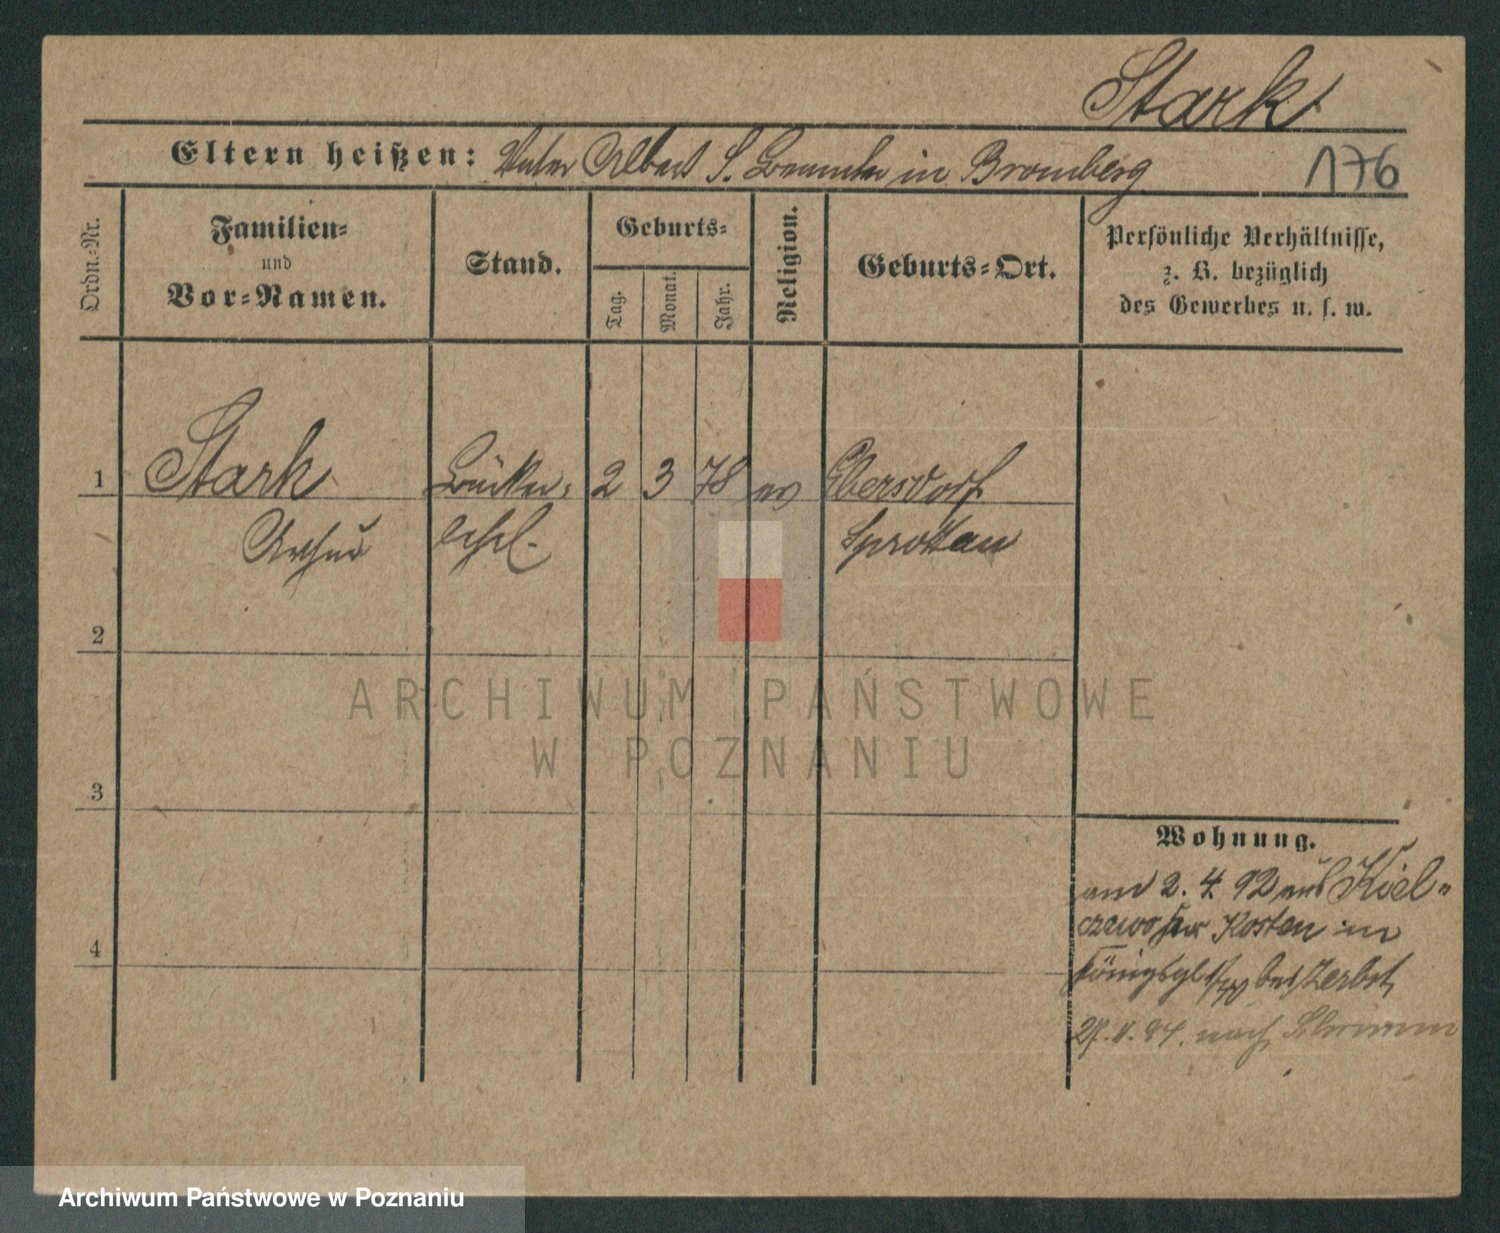 Stark
Eltern heißen: Vater Albert S. Beamter in Bromberg
176
Ordn.-Nr.
Familien-
und
Vor-Namen.
Stand.
Geburts-
Tag.
Monat.
Jahr.
Religion.
Geburts-Ort.
Persönliche Verhältnisse,
z. B. bezüglich
des Gewerbes u. s. w.
1 Stark 2 3 78 ev Ebersdorf
Arthur Sprottau
2
3
4
Wohnung.
am 2. 4. 92 aus Kiel-
czewo Kr Kosten
bei Zerbst
nach
ARCHIWUM PAŃSTWOWE
W POZNANIU
Archiwum Państwowe w Poznaniu